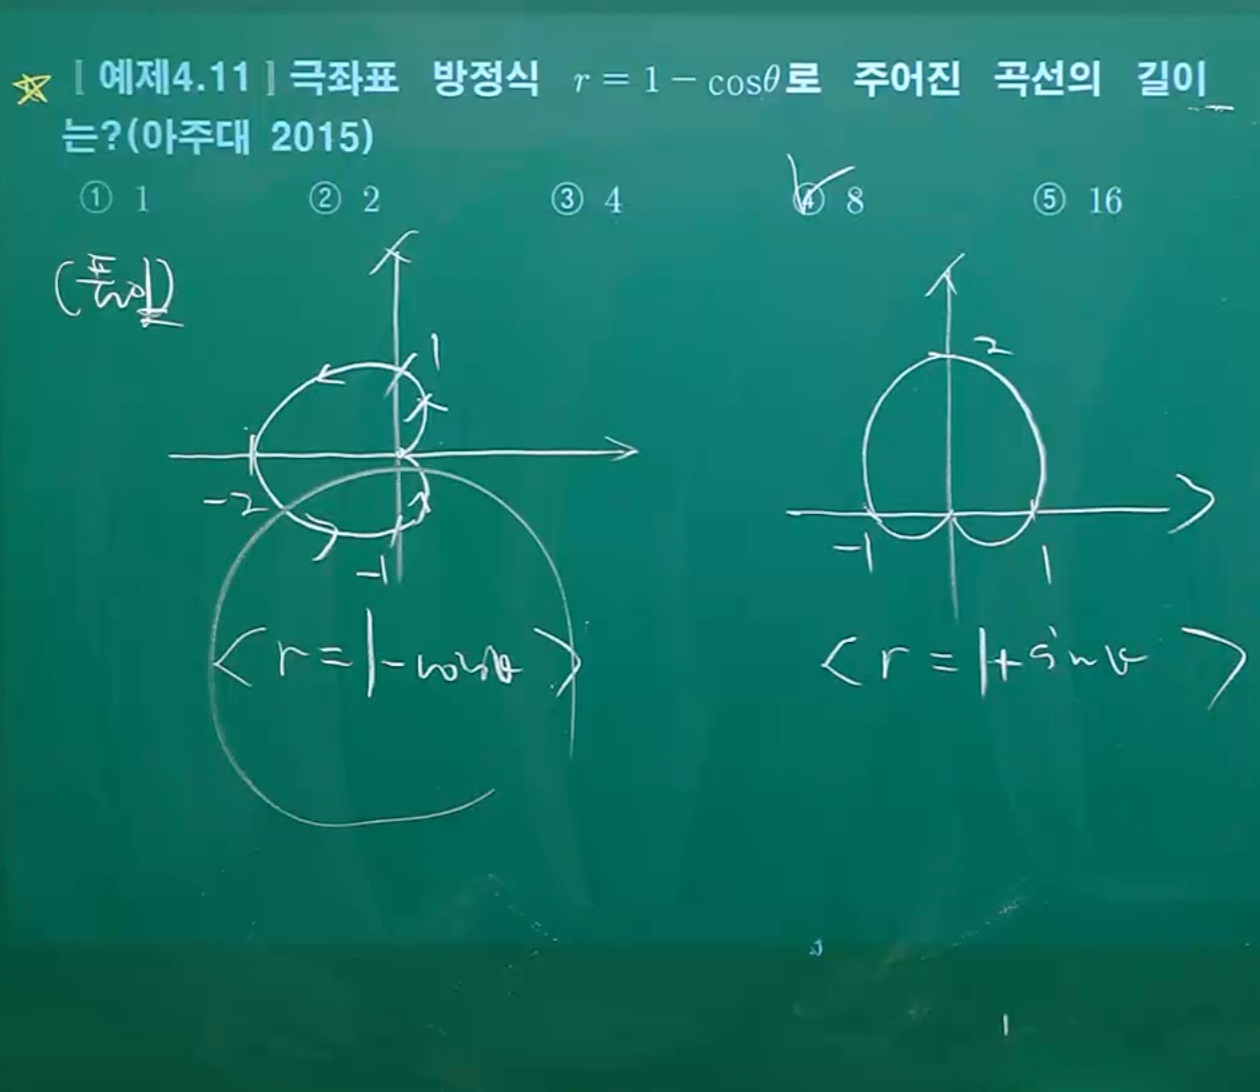 [예제4.11] 극좌표 방정식 r = 1 − cosθ로 주어진 곡선의 길이
는?(아주대 2015)
① 1 ② 2 ③ 4 ④ 8 ⑤ 16
(풀이)
1
2
-2
-1
-1
1
<r = 1 - cosθ>
<r = 1 + sinθ>